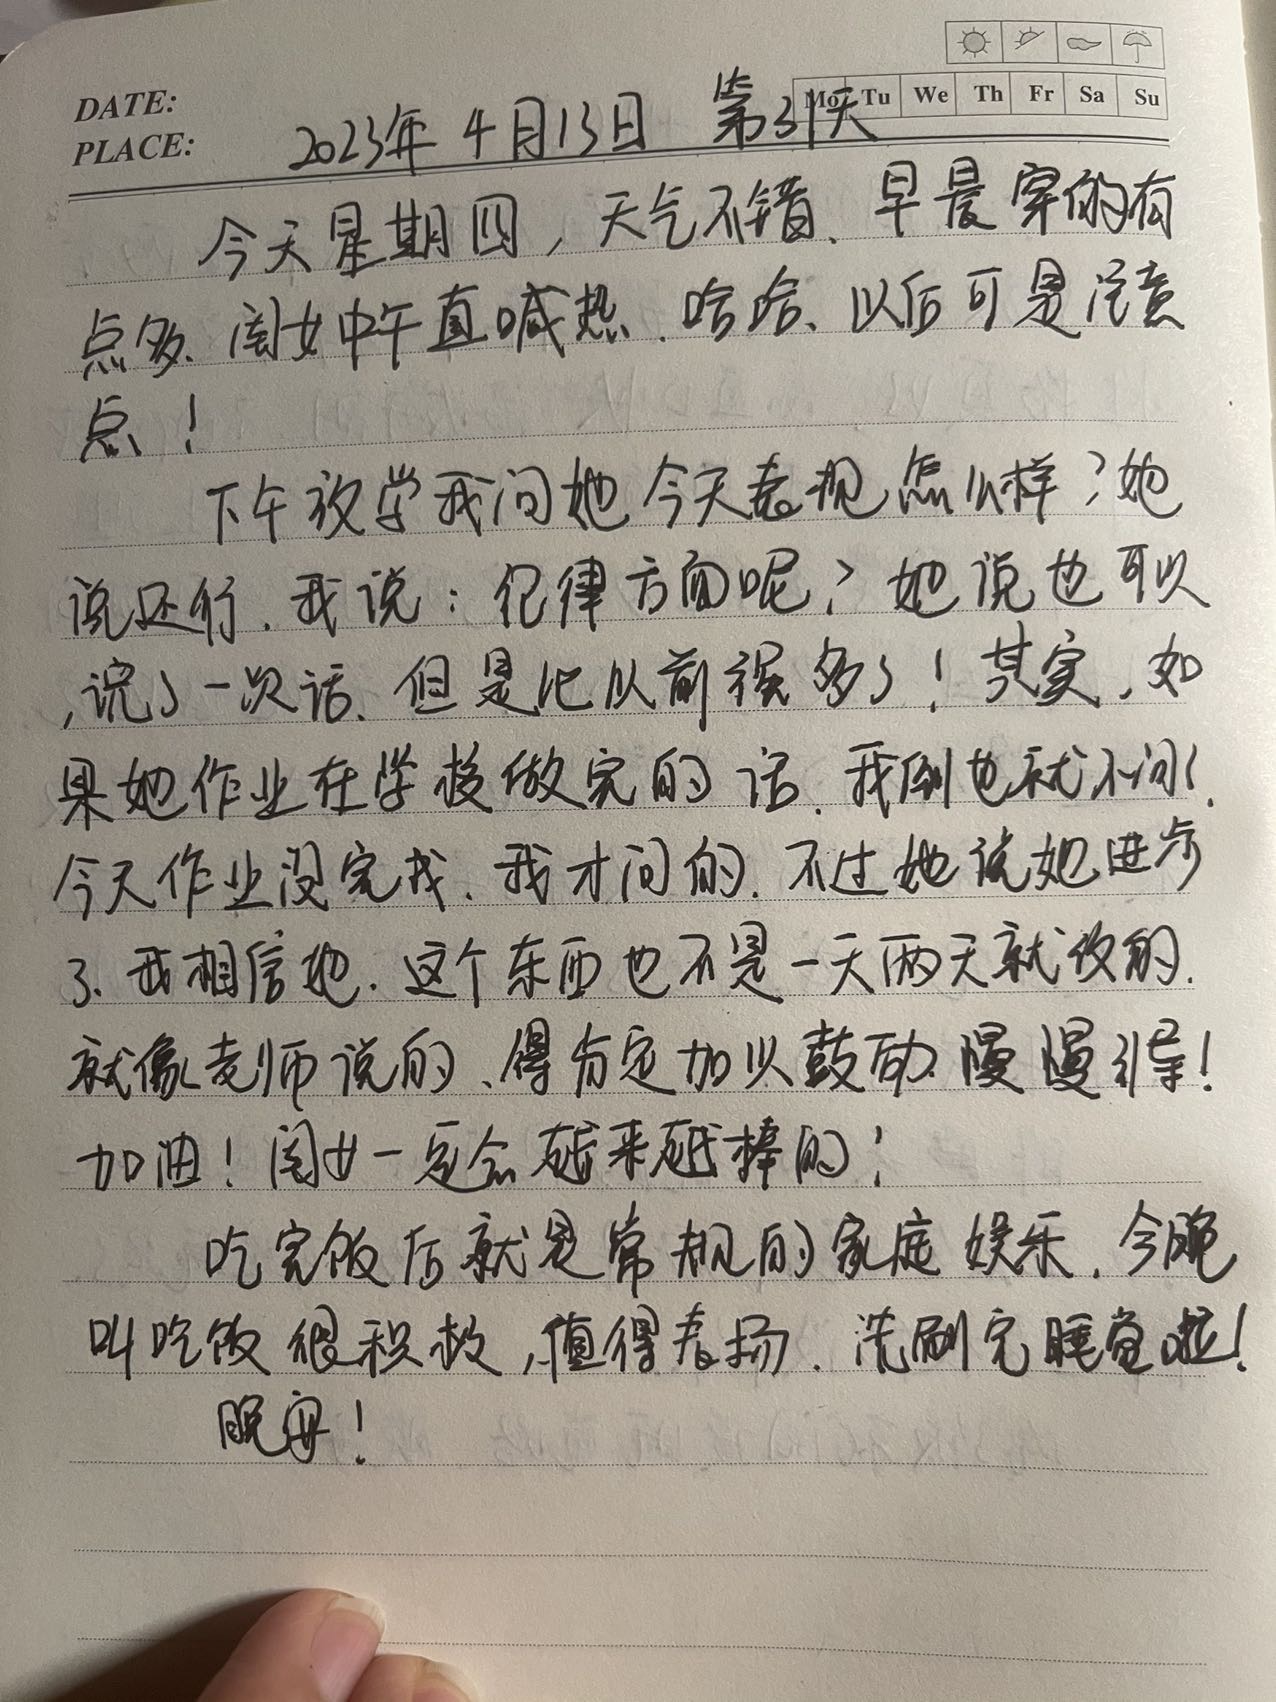 DATE:
PLACE:
Mo Tu We Th Fr Sa Su
2023年4月13日 第31天
今天星期四，天气不错、早晨穿的有
点多、闺女中午直喊热、哈哈、以后可是注意
点！
下午放学我问她今天表现怎么样？她
说还行、我说：纪律方面呢？她说也可以
，说了一次话、但是比以前强多了！其实，如
果她作业在学校做完的话、我倒也就不问了、
今天作业没完成、我才问的、不过她说她进步
了、我相信她、这个东西也不是一天两天就改的、
就像老师说的、得肯定加以鼓励、慢慢引导！
加油！闺女一定会越来越棒的！
吃完饭后就是常规的家庭娱乐、今晚
叫吃饭很积极，值得表扬、洗刷完睡觉啦！
晚安！